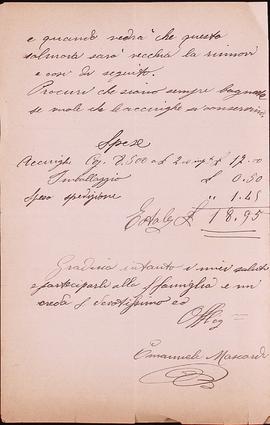 e quando vedrà che questa
salmoia sarà vecchia la rinnovi
e così di seguito.
Procuri che siano sempre bagnate
se vuole che le acciughe si conservino
Spese
Acciughe Cg. 7.500 a £ 2 £ 17.00
Imballaggio £ 0.50
Spese spedizione " 1.45
£ 18.95
Gradisca intanto i miei saluti
e parteciparli alla famiglia e mi
creda devotissimo
Emanuele Mascardi